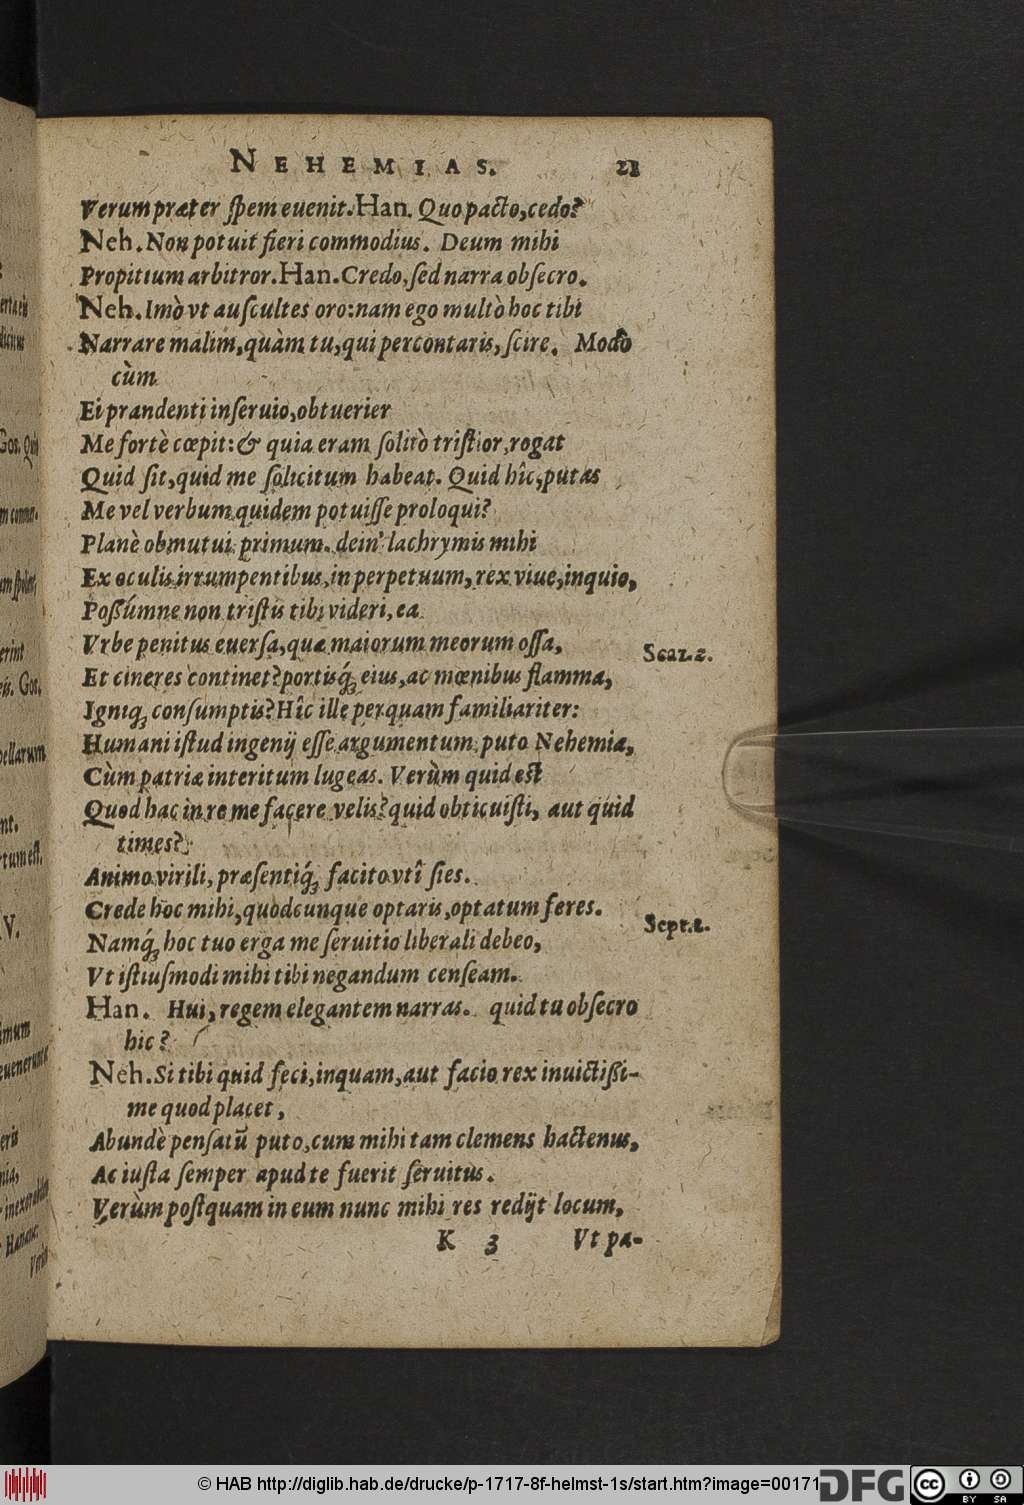 NEHEMIAS. 21
Verum præter ſpem euenit. Han. Quo pacto, cedo?
Neh. Non potuit fieri commodius. Deum mihi
Propitium arbitror. Han. Credo, ſed narra obſecro.
Neh. Imò vt auſcultes oro: nam ego multò hoc tibi
Narrare malim, quàm tu, qui percontaris, ſcire. Modò
cùm
Ei prandenti inſeruio, obtuerier
Me fortè cœpit: & quia eram ſolitò triſtior, rogat
Quid ſit, quid me ſolicitum habeat. Quid hîc, putas
Me vel verbum quidem potuiſſe proloqui?
Planè obmutui primum. dein' lachrymis mihi
Ex oculis irrumpentibus, in perpetuum, rex viue, inquio,
Poßúmne non triſtis tibi videri, ea
Vrbe penitus euerſa, quæ maiorum meorum oſſa,
Scaz. 2.
Et cineres continet? portisq́; eius, ac mœnibus flamma,
Igniq; conſumptis? Hîc ille perquam familiariter:
Humani iſtud ingenij eſſe argumentum puto Nehemia,
Cùm patriæ interitum lugeas. Verùm quid est
Quod hac in re me facere velis? quid obticuiſti, aut quid
times?
Animo virili, præſentiq́; facito vtî ſies.
Crede hoc mihi, quodcunque optaris, optatum feres.
Sept. 2.
Namq́; hoc tuo erga me ſeruitio liberali debeo,
Vt iſtiuſmodi mihi tibi negandum cenſeam.
Han. Hui, regem elegantem narras. quid tu obſecro
hic?
Neh. Si tibi quid feci, inquam, aut facio rex inuictißi-
me quod placet,
Abundè penſatū puto, cum mihi tam clemens hactenus,
Ac iuſta ſemper apud te fuerit ſeruitus.
Verùm poſtquam in eum nunc mihi res redijt locum,
K 3 Vt pa-
© HAB http://diglib.hab.de/drucke/p-1717-8f-helmst-1s/start.htm?image=00171
DFG
cc BY SA